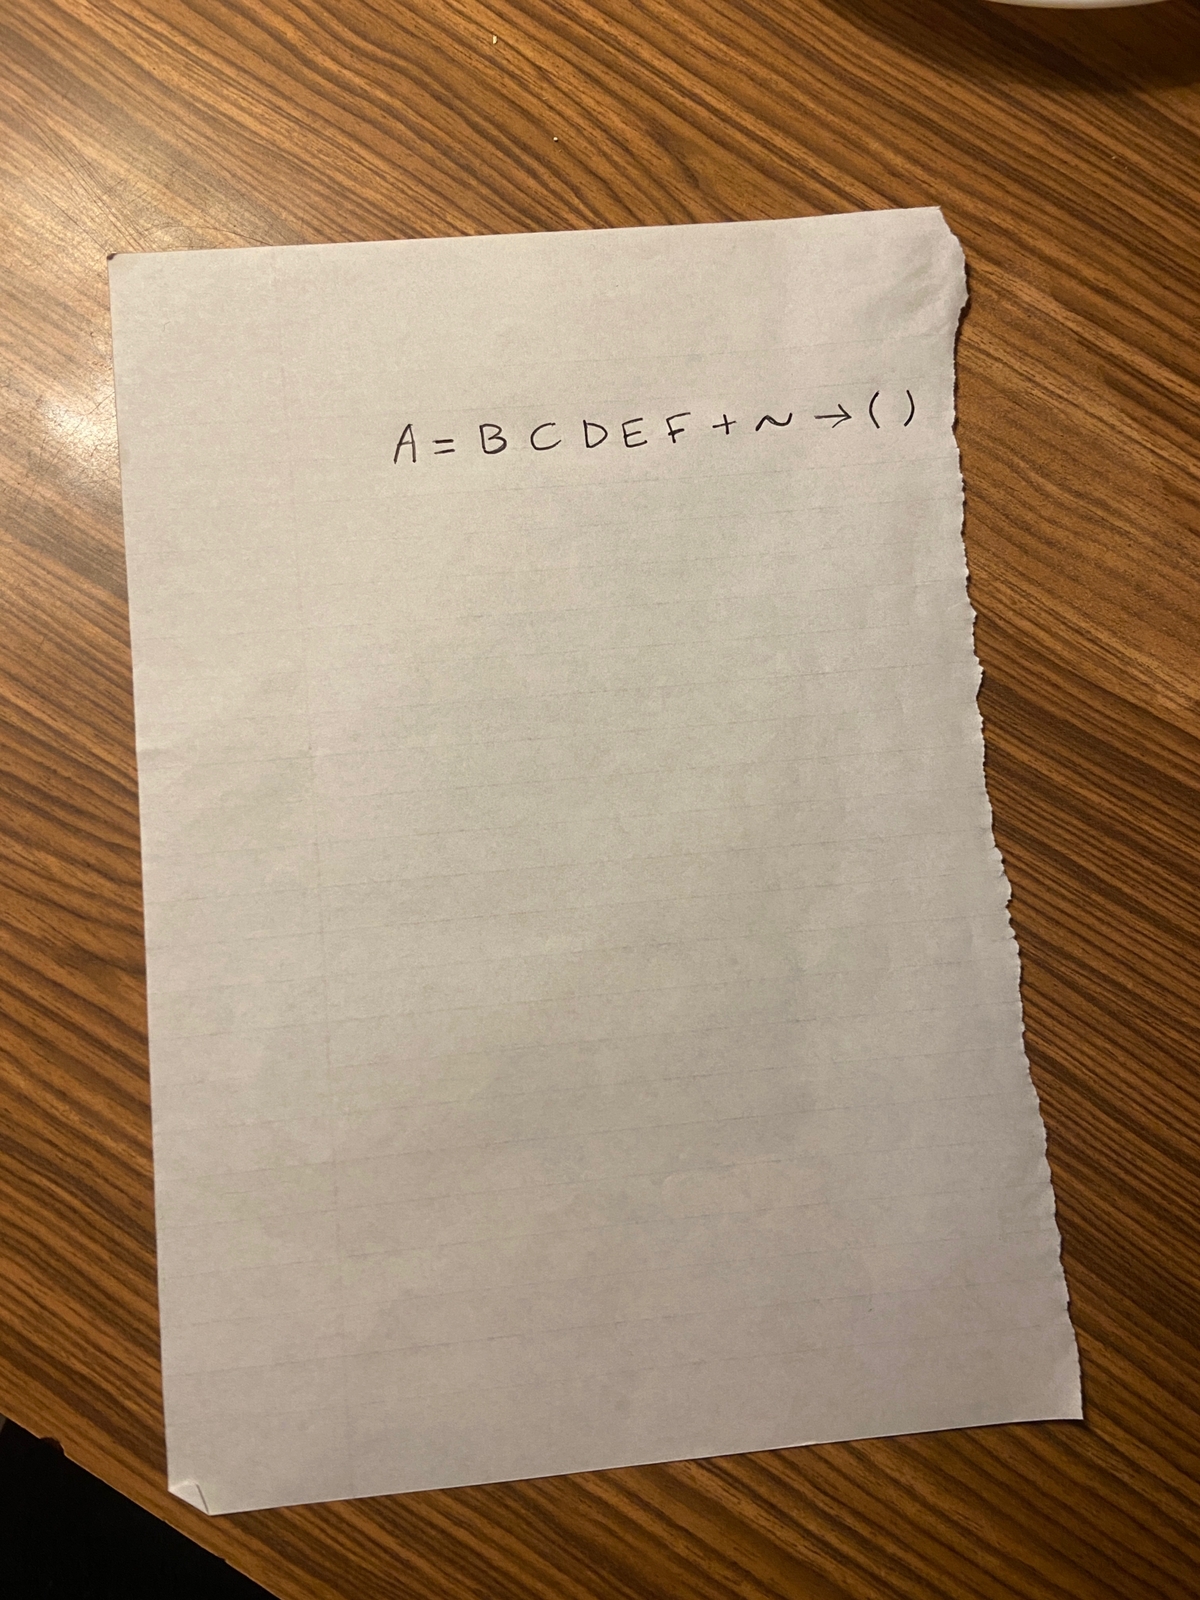 A = B C D E F + ~ → ( )